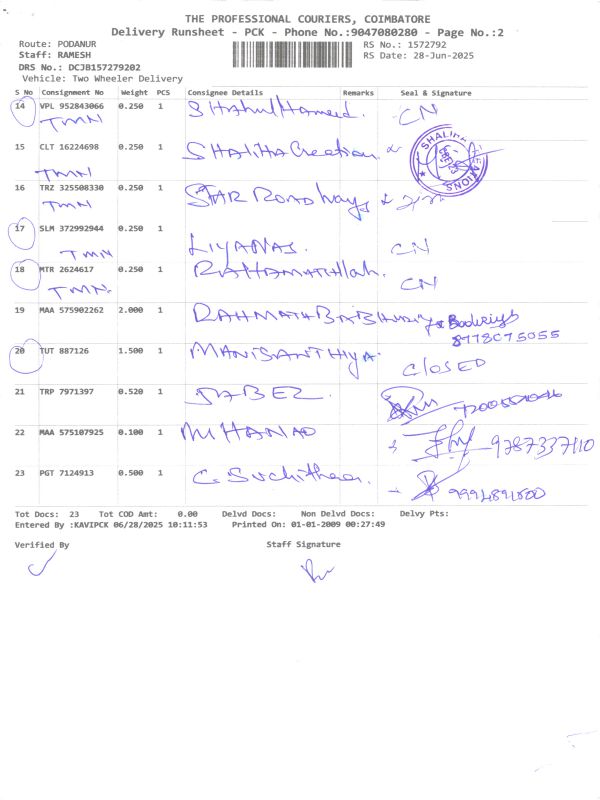 THE PROFESSIONAL COURIERS, COIMBATORE
Delivery Runsheet - PCK - Phone No.:9047080280 - Page No.:2
Route: PODANUR RS No.: 1572792
Staff: RAMESH RS Date: 28-Jun-2025
DRS No.: DCJB157279202
Vehicle: Two Wheeler Delivery
S No Consignment No Weight PCS Consignee Details Remarks Seal & Signature
14 VPL 952843066 0.250 1 SHAhulHameed. CN
TMN
15 CLT 16224698 0.250 1 SHALIHA Creation
TMN
16 TRZ 325508330 0.250 1 STAR ROADWays
TMN
17 SLM 372992944 0.250 1 LIYANAS. CN
TMN
18 MTR 2624617 0.250 1 RAHAMATHllah. CN
TMN
19 MAA 575902262 2.000 1 RAHMATH
20 TUT 887126 1.500 1 MANISANTHIYA. CLOSED
21 TRP 7971397 0.520 1 JABEZ.
22 MAA 575107925 0.100 1 MIHANAD 9787337110
23 PGT 7124913 0.500 1 C. Suchithra.
Tot Docs: 23 Tot COD Amt: 0.00 Delvd Docs: Non Delvd Docs: Delvy Pts:
Entered By :KAVIPCK 06/28/2025 10:11:53 Printed On: 01-01-2009 00:27:49
Verified By Staff Signature